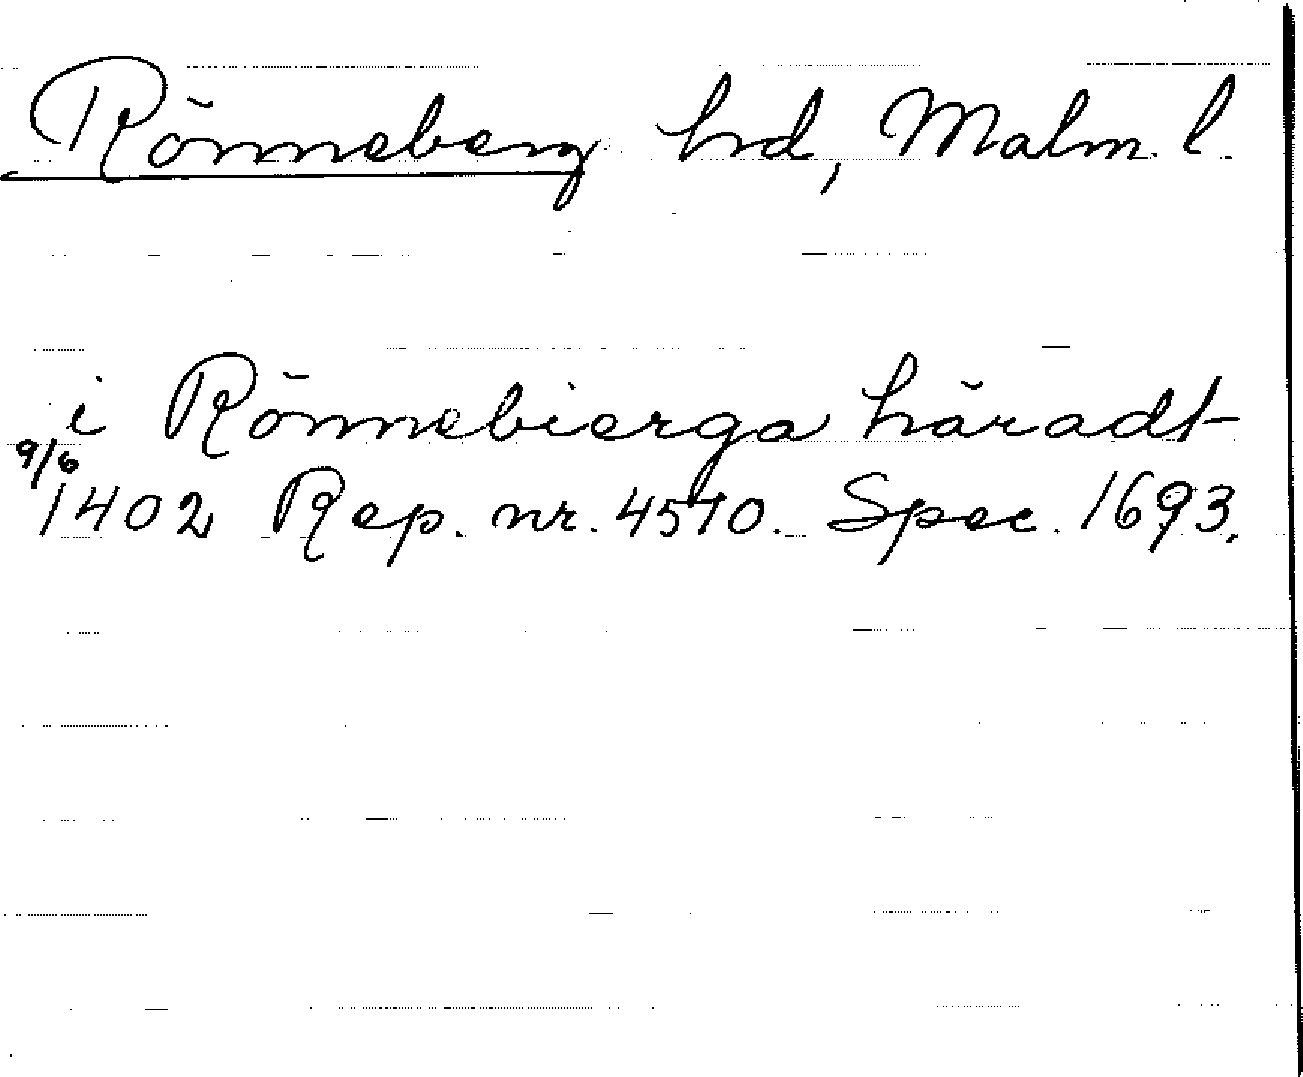 Rönneberg hrd, Malm. l.
i Rönnebierga häradt
9/6 1402 Rep. nr. 4570. Spec. 1693.